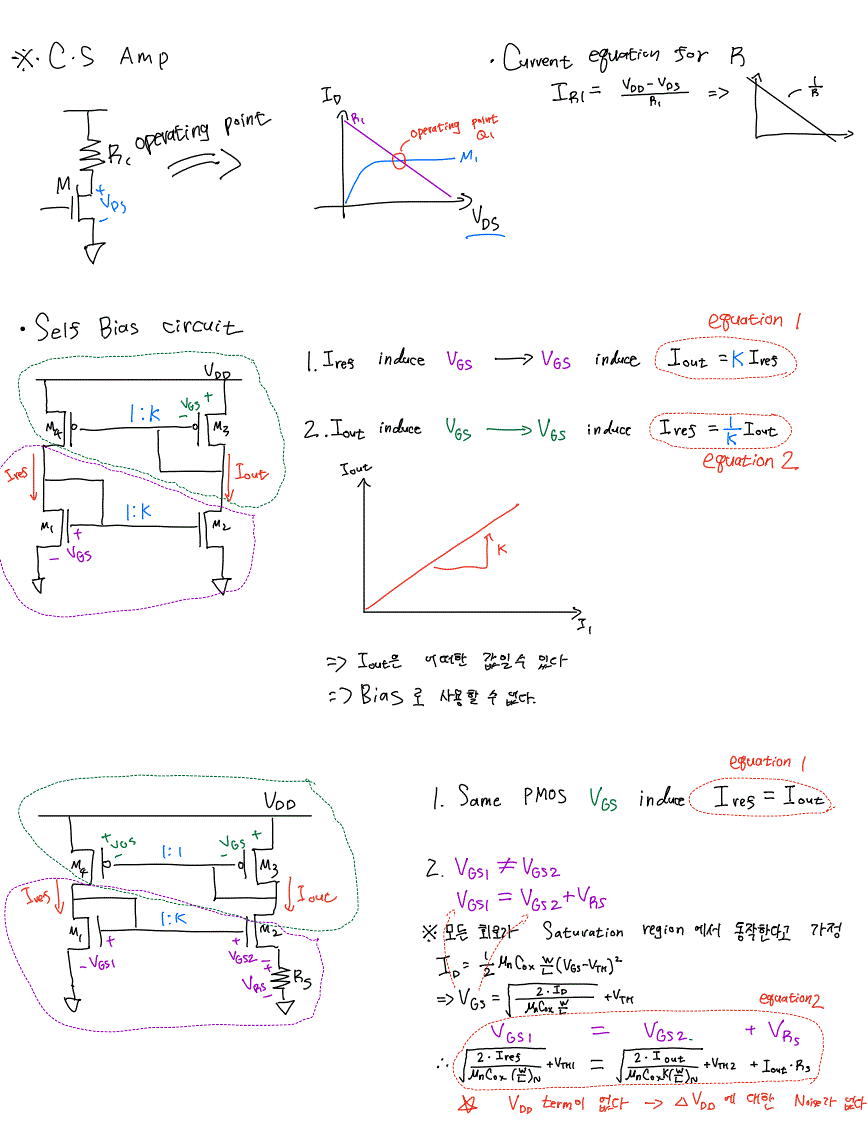 ※. C.S Amp
R_C
operating point
M
+
V_DS
-
I_D
R_1
operating point
Q_1
M_1
V_DS
· Current equation for R
I_R1 = (V_DD - V_DS)/R_1 =>
1/R
· Self Bias circuit
V_DD
M4
1:K
V_GS +
-
M3
I_ref
I_out
M1
1:K
M2
+
- V_GS
equation 1
1. I_ref induce V_GS → V_GS induce I_out = K I_ref
2. I_out induce V_GS → V_GS induce I_ref = 1/K I_out
equation 2
I_out
K
I_1
=> I_out은 어떠한 값일수 있다
=> Bias로 사용할 수 없다.
V_DD
M4
+ V_GS -
1:1
V_GS +
-
M3
I_ref
I_out
M1
1:K
M2
+
- V_GS1
+
V_GS2 -
+
V_RS
-
R_S
equation 1
1. Same PMOS V_GS induce I_ref = I_out
2. V_GS1 ≠ V_GS2
V_GS1 = V_GS2 + V_RS
※ 모든 회로가 Saturation region에서 동작한다고 가정
I_D = 1/2 μnCox W/L (V_GS - V_TH)²
=> V_GS = √(2·I_D / (μnCox W/L)) + V_TH
equation2
V_GS1 = V_GS2 + V_RS
∴ √(2·I_ref / (μnCox (W/L)_N)) + V_TH1 = √(2·I_out / (μnCox K(W/L)_N)) + V_TH2 + I_out·R_S
☆ V_DD term이 없다 → △V_DD에 대한 Noise가 없다